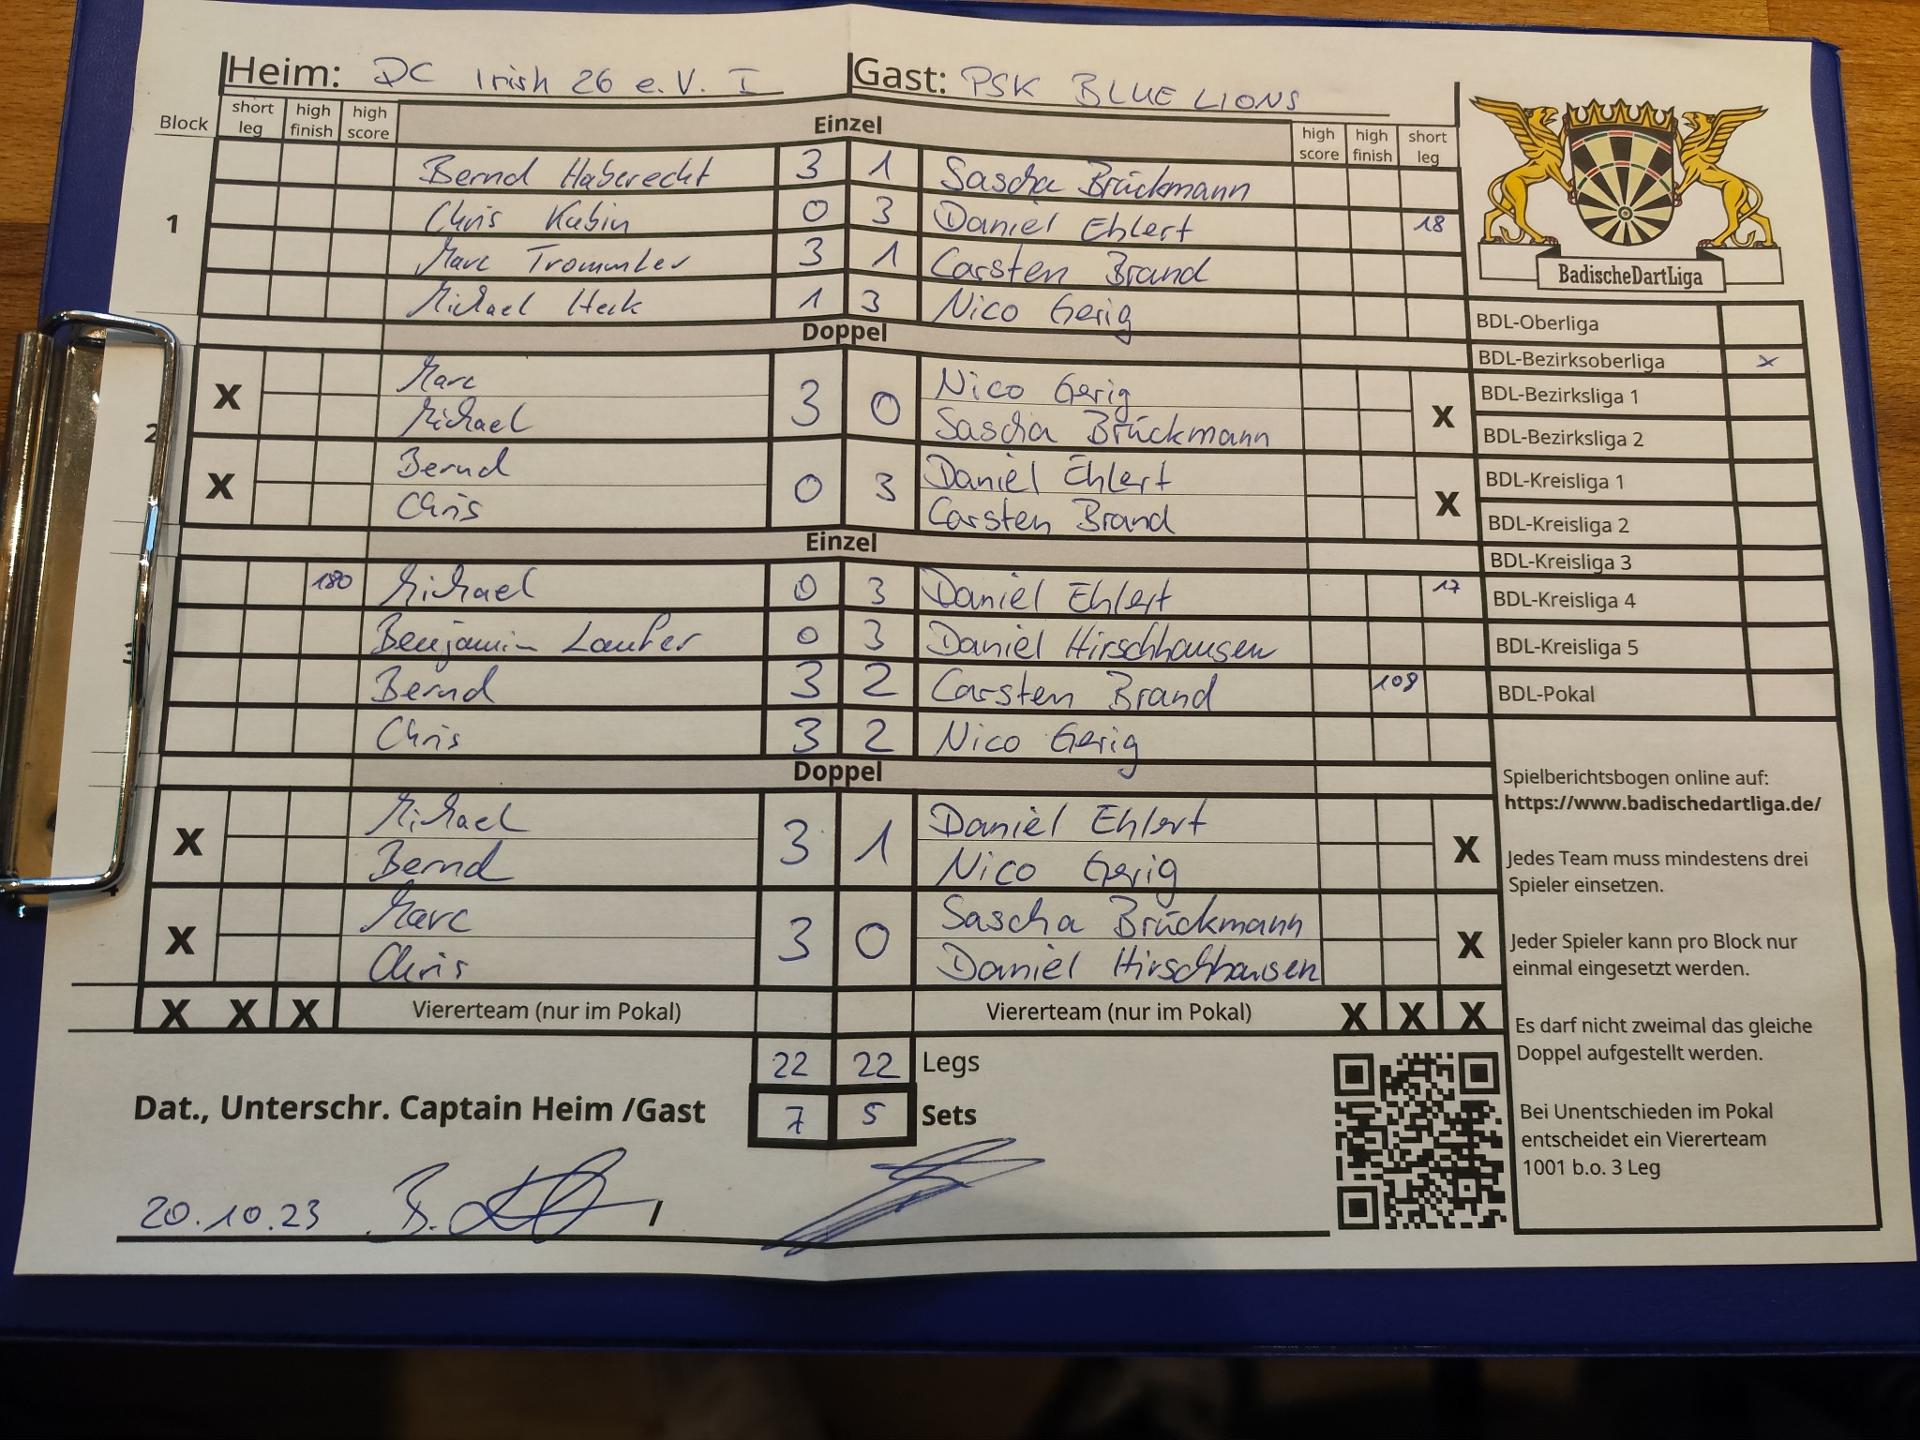 Heim: DC Irish 26 e.V. I Gast: PSK BLUE LIONS
Block short leg high finish high score Einzel high score high finish short leg
1
Bernd Haberecht 3 1 Sascha Brückmann
Chris Kubin 0 3 Daniel Ehlert 18
Marc Trommler 3 1 Carsten Brand
Michael Heck 1 3 Nico Gerig
Doppel
2
X Marc 3 0 Nico Gerig X
Michael Sascha Brückmann
X Bernd 0 3 Daniel Ehlert X
Chris Carsten Brand
Einzel
3
180 Michael 0 3 Daniel Ehlert 17
Benjamin Laufer 0 3 Daniel Hirschhausen
Bernd 3 2 Carsten Brand 108
Chris 3 2 Nico Gerig
Doppel
X Michael 3 1 Daniel Ehlert X
Bernd Nico Gerig
X Marc 3 0 Sascha Brückmann X
Chris Daniel Hirschhausen
X X X Viererteam (nur im Pokal) Viererteam (nur im Pokal) X X X
22 22 Legs
7 5 Sets
Dat., Unterschr. Captain Heim /Gast
20.10.23 /
BadischeDartLiga
BDL-Oberliga
BDL-Bezirksoberliga x
BDL-Bezirksliga 1
BDL-Bezirksliga 2
BDL-Kreisliga 1
BDL-Kreisliga 2
BDL-Kreisliga 3
BDL-Kreisliga 4
BDL-Kreisliga 5
BDL-Pokal
Spielberichtsbogen online auf:
https://www.badischedartliga.de/
Jedes Team muss mindestens drei
Spieler einsetzen.
Jeder Spieler kann pro Block nur
einmal eingesetzt werden.
Es darf nicht zweimal das gleiche
Doppel aufgestellt werden.
Bei Unentschieden im Pokal
entscheidet ein Viererteam
1001 b.o. 3 Leg